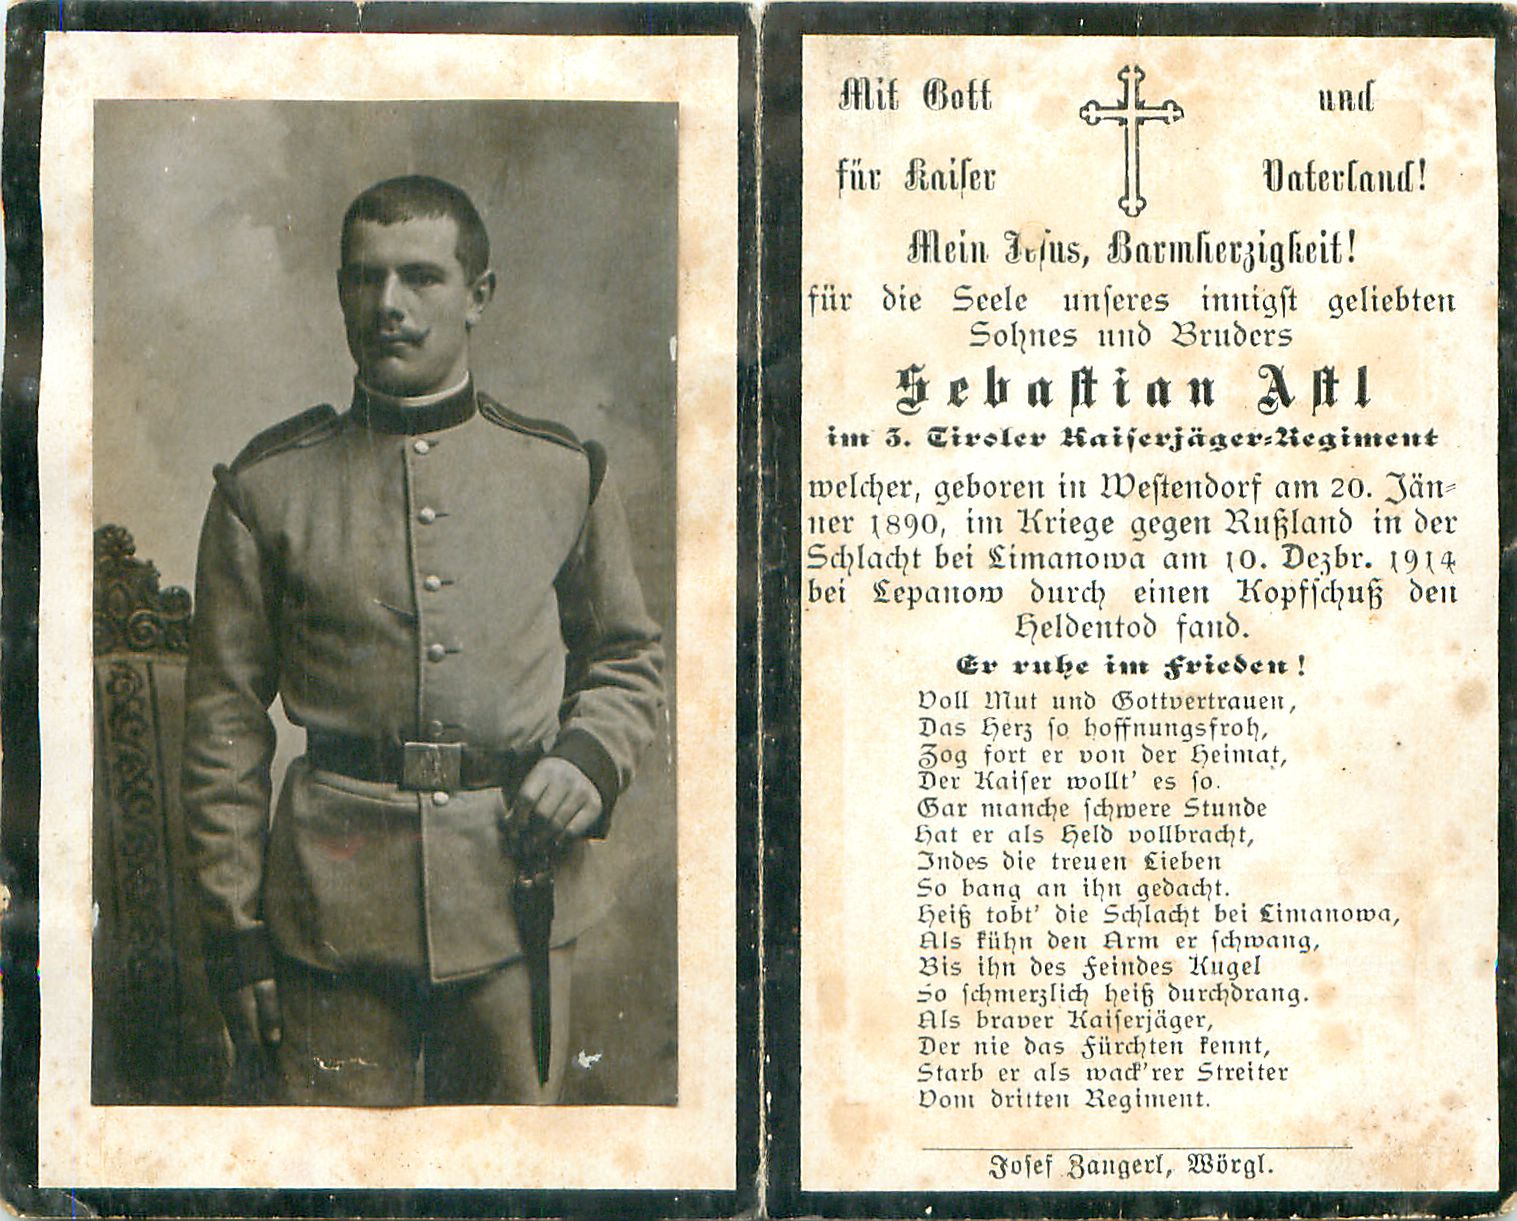 Mit Gott und
für Kaiser Vaterland!
Mein Jesus, Barmherzigkeit!
für die Seele unseres innigst geliebten
Sohnes und Bruders
Sebastian Astl
im 3. Tiroler Kaiserjäger-Regiment
welcher, geboren in Westendorf am 20. Jän-
ner 1890, im Kriege gegen Rußland in der
Schlacht bei Limanowa am 10. Dezbr. 1914
bei Lepanow durch einen Kopfschuß den
Heldentod fand.
Er ruhe im Frieden!
Voll Mut und Gottvertrauen,
Das Herz so hoffnungsfroh,
Zog fort er von der Heimat,
Der Kaiser wollt' es so.
Gar manche schwere Stunde
Hat er als Held vollbracht,
Indes die treuen Lieben
So bang an ihn gedacht.
Heiß tobt' die Schlacht bei Limanowa,
Als kühn den Arm er schwang,
Bis ihn des Feindes Kugel
So schmerzlich heiß durchdrang.
Als braver Kaiserjäger,
Der nie das Fürchten kennt,
Starb er als wack'rer Streiter
Vom dritten Regiment.
Josef Zangerl, Wörgl.